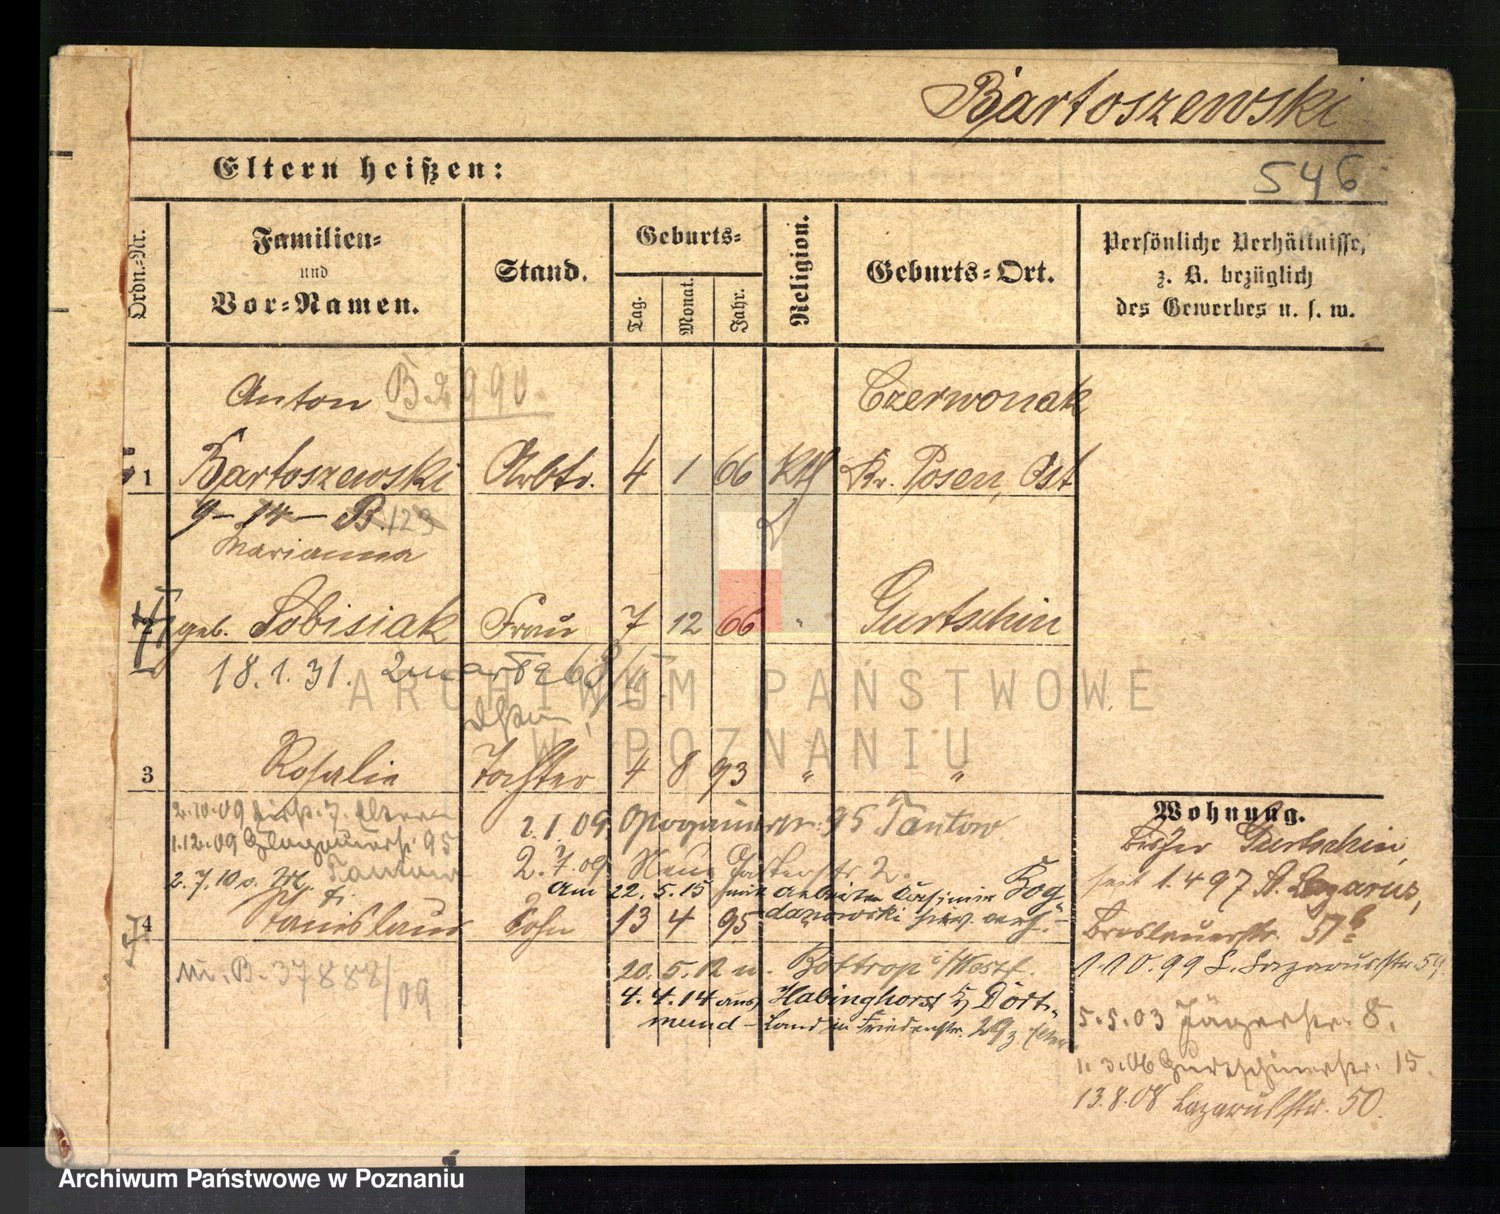 Bartoszewski
546
Eltern heißen:
Ordn.-Nr.
Familien-
und
Vor-Namen.
Stand.
Geburts-
Tag.
Monat.
Jahr.
Religion.
Geburts-Ort.
Persönliche Verhältnisse,
z. B. bezüglich
des Gewerbes u. s. w.
Anton
Czerwonak
1 Bartoszewski Arbtr. 4 1 66 Kth Kr. Posen, Ost
9 - 14 - B. 123
Marianna
geb. Sobisiak Frau 7 12 66 " Gurtschin
18.1.31.
3 Rosalie Tochter 4 8 93 " "
2.10.09 z. Eltern
1.12.09 Glogauerstr. 95
2.1.09 Glogauerstr. 95
2.7.09 Neue Gartenstr. 2.
2.7.10 v.
am 22.5.15 mit Arbeiter Casimir Bog
danowski hier verh.
4 Stanislaus Sohn 13 4 95
B. 37888/09
20.5.12 n. Bottrop i/Westf.
4.4.14 aus Habinghorst Dort-
mund - Land
Wohnung.
Bisher Gurtschin,
seit 1.4 97 St. Lazarus,
Breslauerstr. 57
1.10.99 L. Lazarusstr 59
5.5.03 Jägerstr. 8.
1.3.06 Gurtschinerstr. 15.
13.8.08 Lazarusstr. 50.
ARCHIWUM PAŃSTWOWE
W POZNANIU
Archiwum Państwowe w Poznaniu